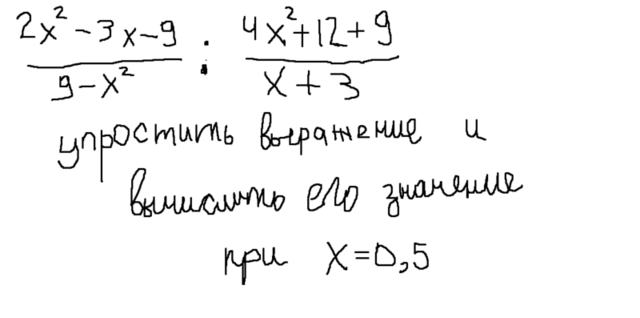 (2x² - 3x - 9)/(9 - x²) : (4x² + 12 + 9)/(x + 3)
упростить выражение и
вычислить его значение
при x = 0,5